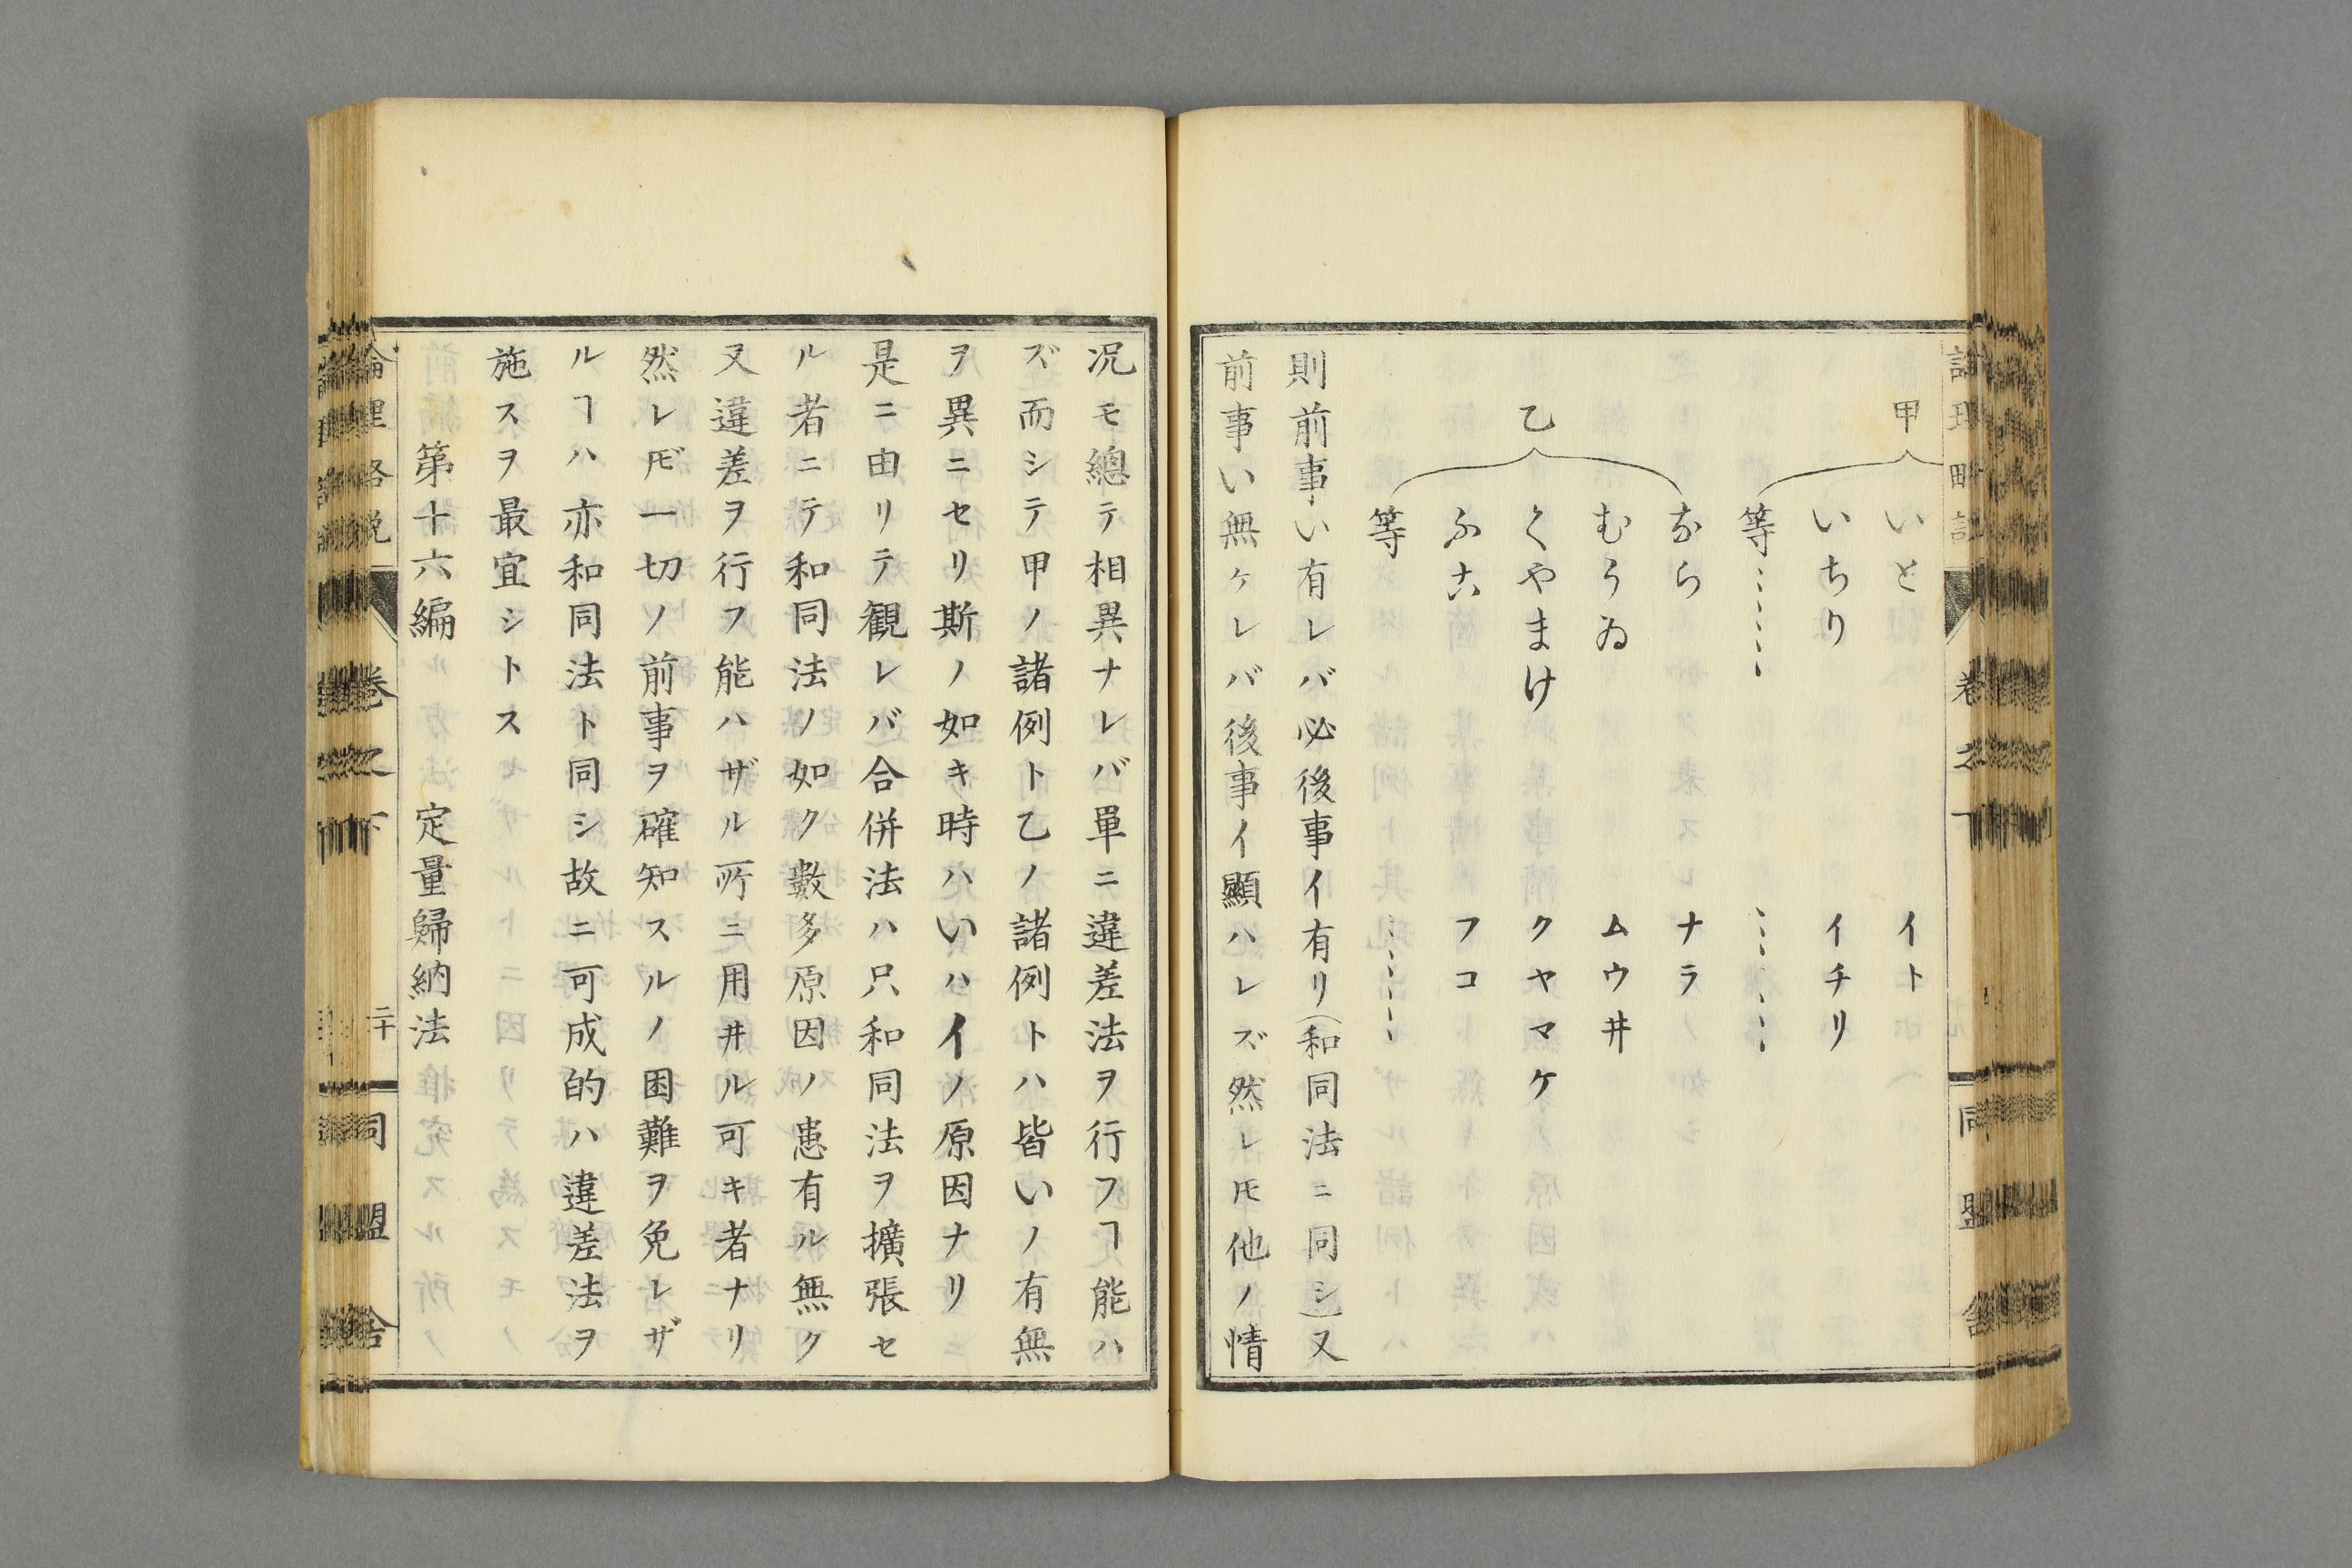 甲
いと　イト
いちり　イチリ
等……　……
乙
なら　ナラ
むうゐ　ムウ井
くやまけ　クヤマケ
ふこ　フコ
等　……
則前事い有レバ必後事イ有リ(和同法ニ同シ)又
前事い無ケレバ後事イ顯ハレズ然レ𪜈他ノ情
況モ總テ相異ナレバ單ニ違差法ヲ行フヿ能ハ
ズ而シテ甲ノ諸例ト乙ノ諸例トハ皆いノ有無
ヲ異ニセリ斯ノ如キ時ハいハイノ原因ナリ
是ニ由リテ観レバ合併法ハ只和同法ヲ擴張セ
ル者ニテ和同法ノ如ク數多原因ノ患有ル無ク
又違差ヲ行フ能ハザル所ニ用井ル可キ者ナリ
然レ𪜈一切ノ前事ヲ確知スルノ困難ヲ免レザ
ルヿハ亦和同法ト同シ故ニ可成的ハ違差法ヲ
施スヲ最宜シトス
第十六編　定量歸納法
論理略説　卷之下　二十　同盟舍